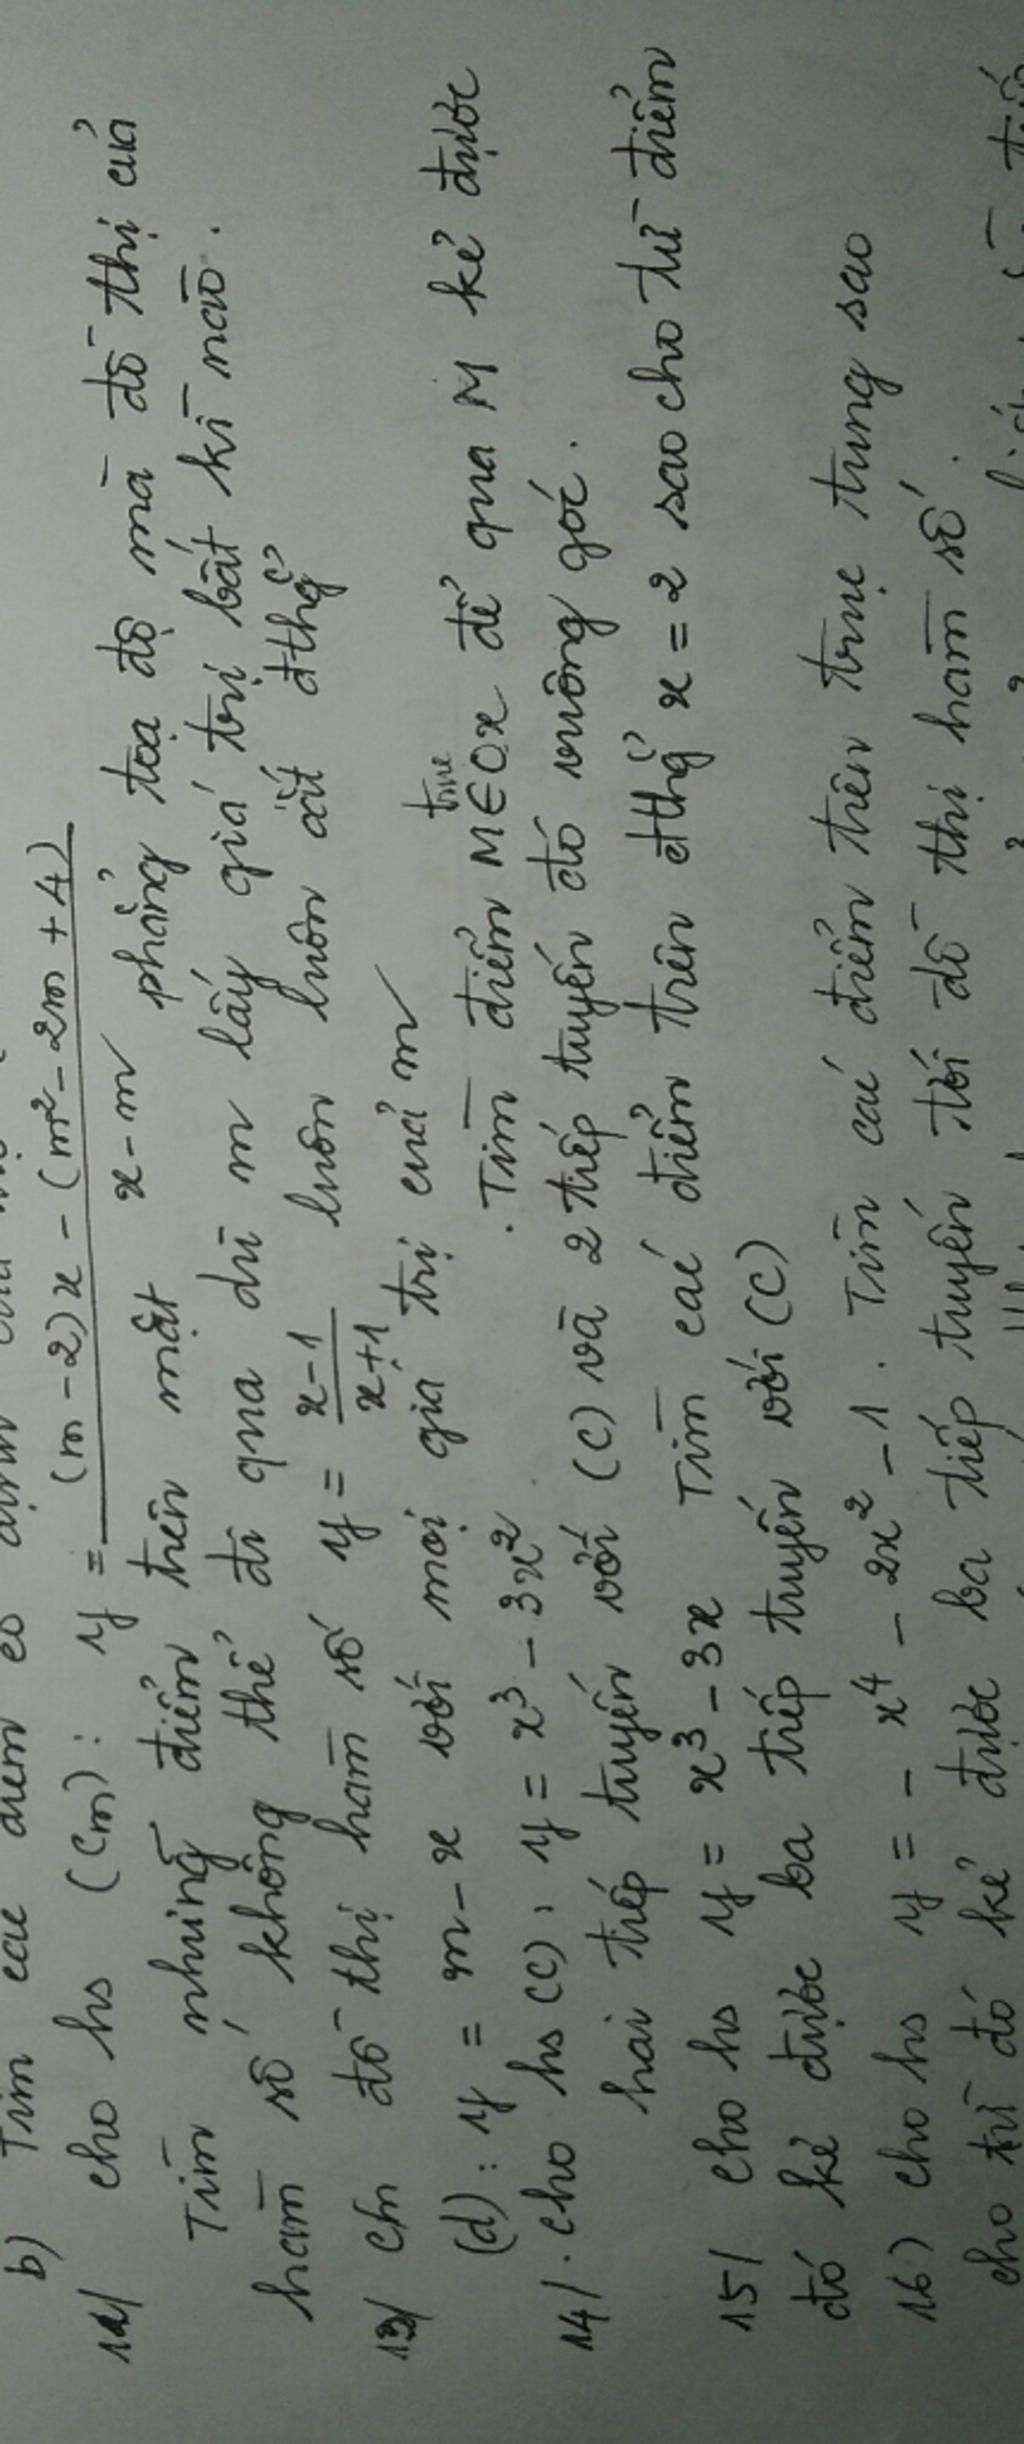 b) Tìm các điểm cố định
12/ cho hs (Cm): y = \frac{(m-2)x - (m² - 2m + 4)}{x - m}
Tìm những điểm trên mặt phẳng tọa độ mà đồ thị của
hàm số không thể đi qua dù m lấy giá trị bất kì nào.
13/ cm đồ thị hàm số y = \frac{x-1}{x+1} luôn luôn cắt đthg̉
(d): y = m - x với mọi giá trị của m
14/. cho hs (C), y = x³ - 3x². Tìm điểm M ∈ trục Ox để qua M kẻ được
hai tiếp tuyến với (C) và 2 tiếp tuyến đó vuông góc.
15/ cho hs y = x³ - 3x Tìm các điểm trên đthg̉ x = 2 sao cho từ điểm
đó kẻ được ba tiếp tuyến với (C)
16) cho hs y = - x⁴ - 2x² - 1. Tìm các điểm trên trục tung sao
cho từ đó kẻ được ba tiếp tuyến tới đồ thị hàm số.